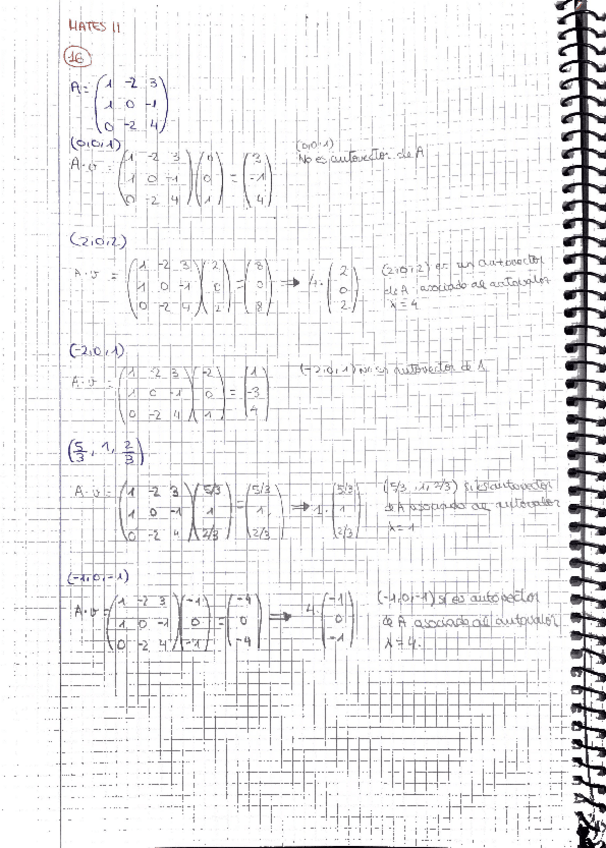 MATES II
16
A = (1 -2 3
1 0 -1
0 -2 4)
(0,0,1)
A·v = (1 -2 3 / 1 0 -1 / 0 -2 4) (0 / 0 / 1) = (3 / -1 / 4)
(0,0,1)
No es autovector de A
(2,0,2)
A·v = (1 -2 3 / 1 0 -1 / 0 -2 4) (2 / 0 / 2) = (8 / 0 / 8) ⇒ 4·(2 / 0 / 2)
(2,0,2) es un autovector
de A asociado al autovalor
λ=4
(-2,0,1)
A·v = (1 -2 3 / 1 0 -1 / 0 -2 4) (-2 / 0 / 1) = (1 / -3 / 4)
(-2,0,1) No es autovector de A
(5/3, 1, 2/3)
A·v = (1 -2 3 / 1 0 -1 / 0 -2 4) (5/3 / 1 / 2/3) = (5/3 / 1 / 2/3) ⇒ 1·(5/3 / 1 / 2/3)
(5/3, 1, 2/3) si es autovector
de A asociado al autovalor
λ=1
(-1,0,-1)
A·v = (1 -2 3 / 1 0 -1 / 0 -2 4) (-1 / 0 / -1) = (-4 / 0 / -4) ⇒ 4·(-1 / 0 / -1)
(-1,0,-1) si es autovector
de A asociado al autovalor
λ=4.